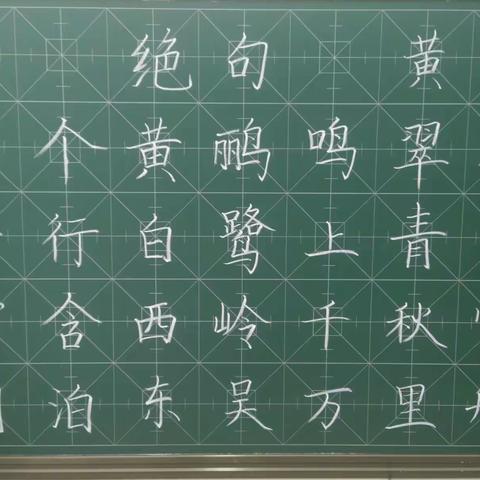 绝句 黄
个黄鹂鸣翠
行自鹭上青
含西岭千秋
泊东吴万里